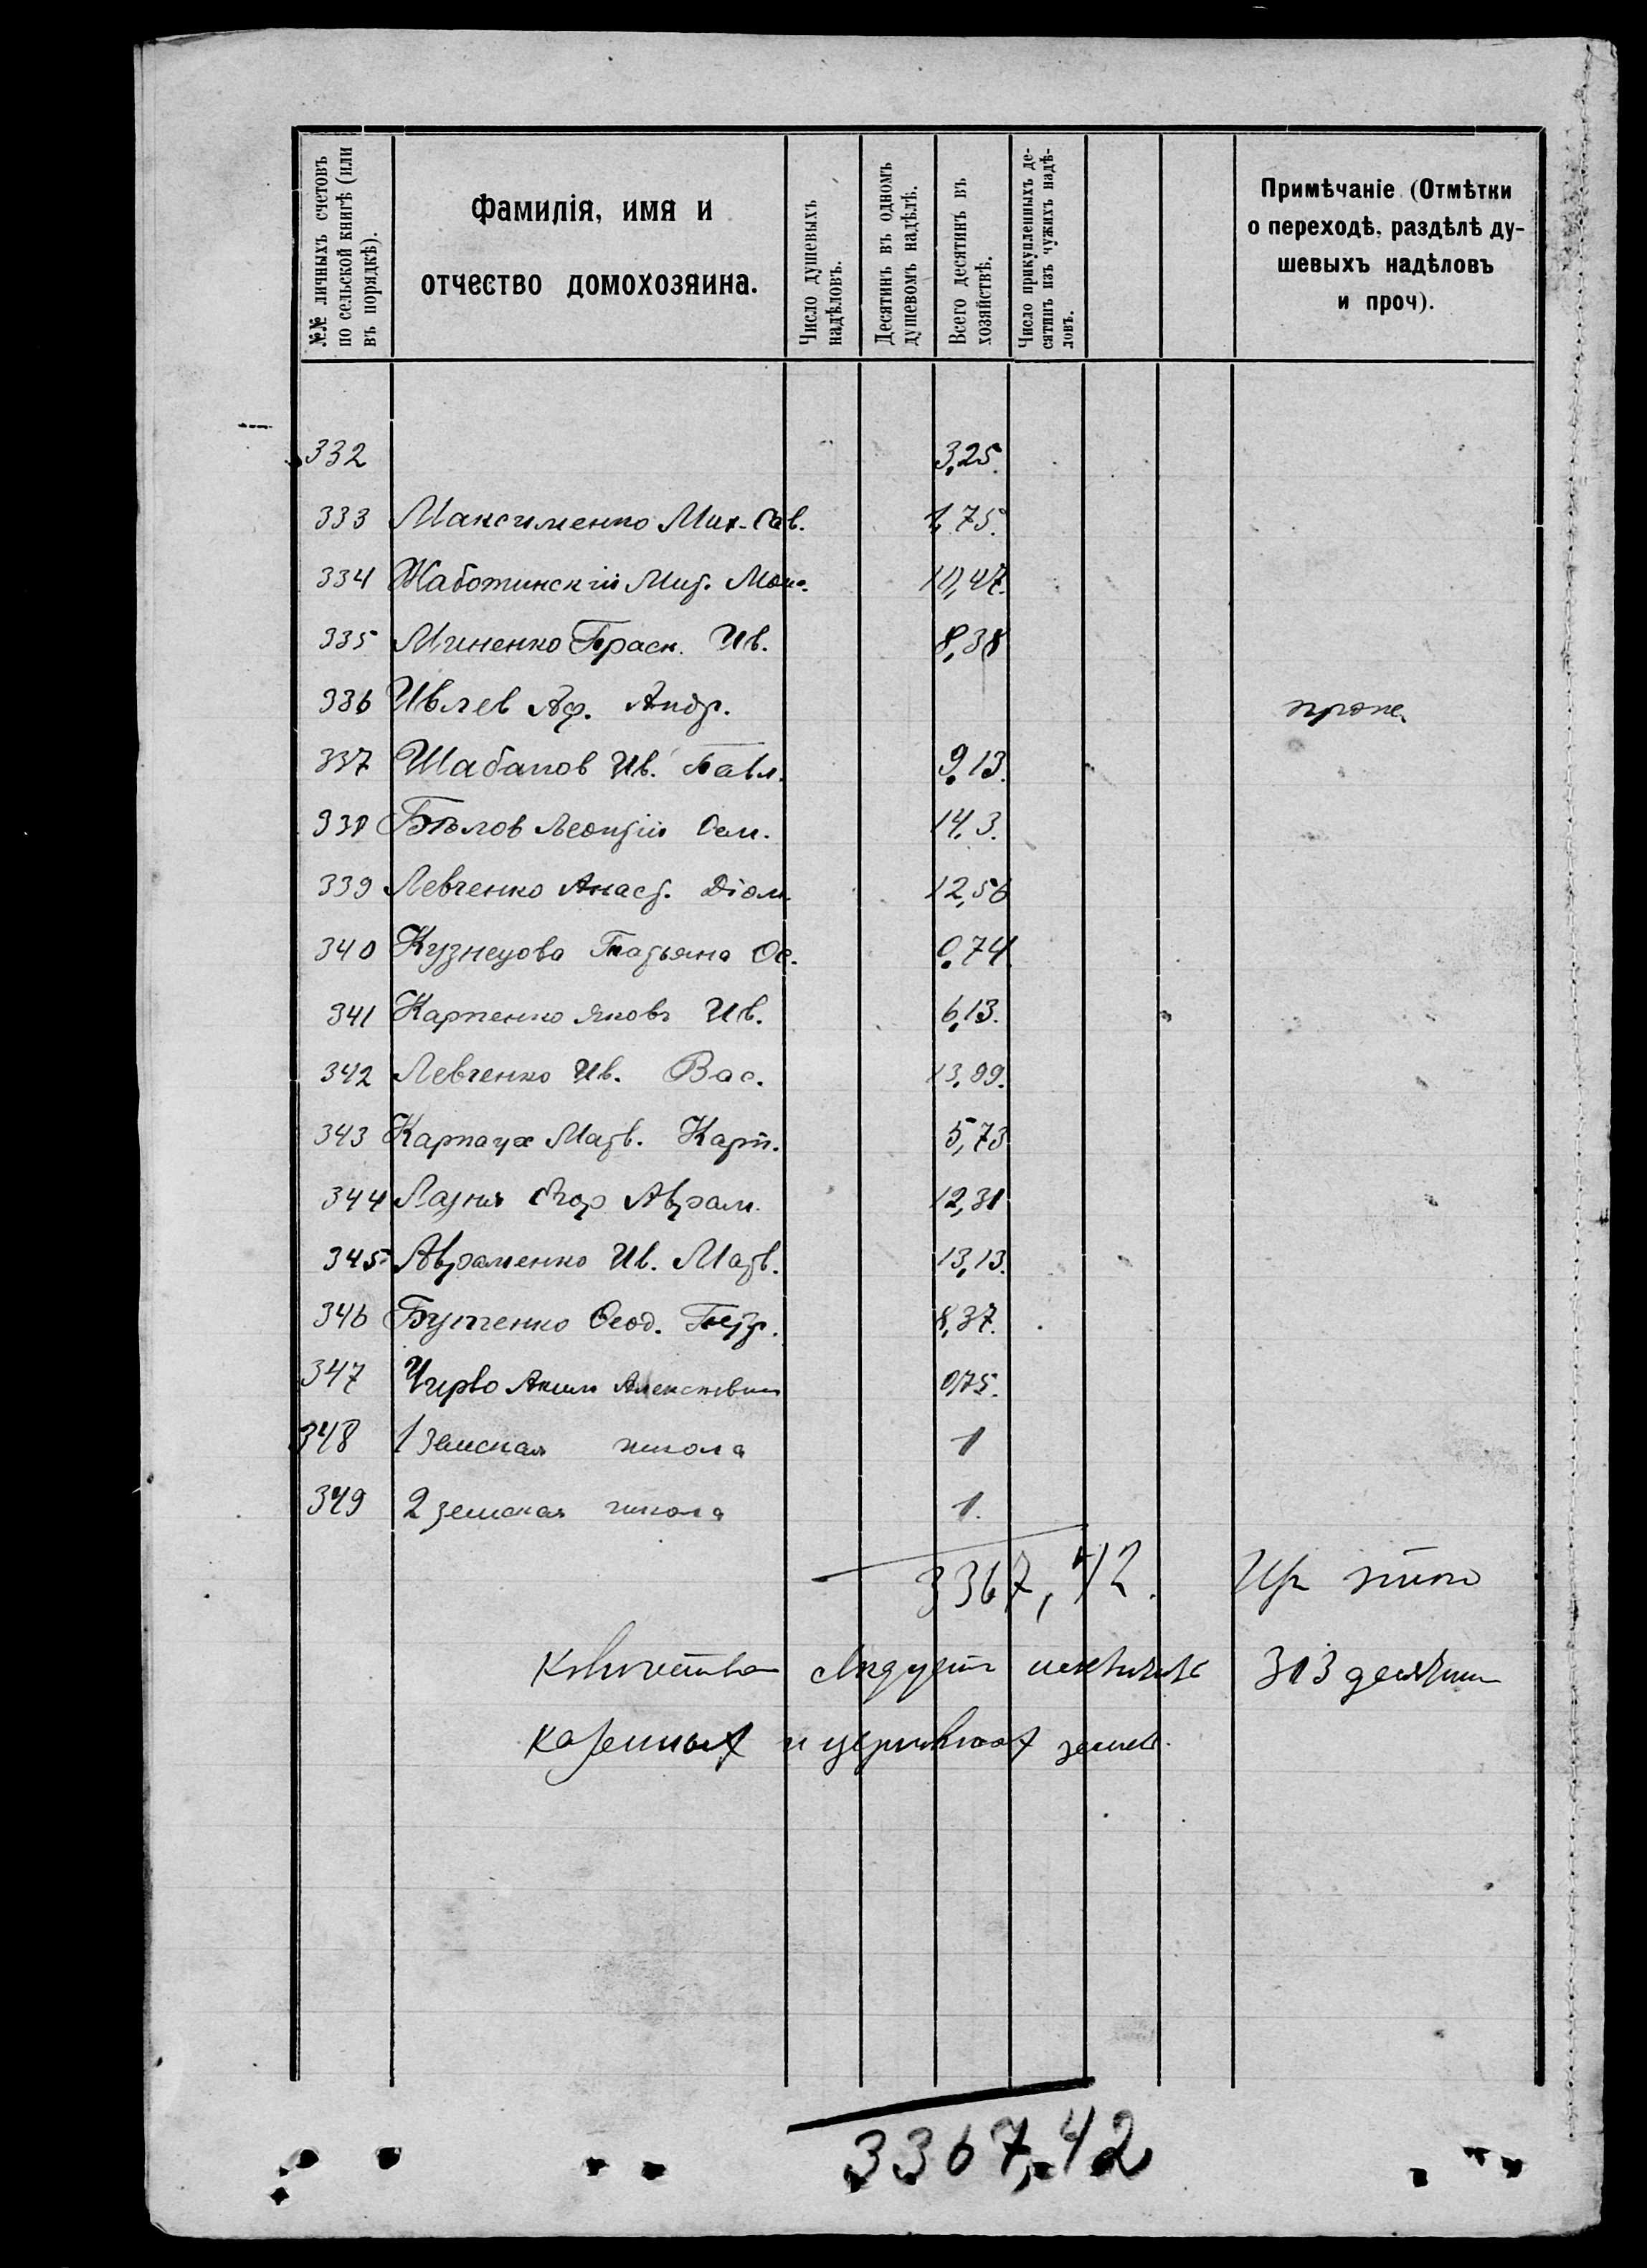 №№ личныхъ счетовъ по сельской книгѣ (или въ порядкѣ).
Фамилія, имя и
отчество домохозяина.
Число душевыхъ надѣловъ.
Десятинъ въ одномъ душевомъ надѣлѣ.
Всего десятинъ въ хозяйствѣ.
Число прикупленныхъ десятинъ изъ чужихъ надѣловъ.
Примѣчаніе (Отмѣтки
о переходѣ, раздѣлѣ ду-
шевыхъ надѣловъ
и проч).
332 3,25.
333 Максименко Мих. Сав. 1,75.
334 Жаботинскій Мит. 10,47.
335 Миненко Праск. Ив. 8,38
336 Ивлев Аф. Андр.
337 Шабанов Ив. Павл. 9,13.
338 Бѣлов Леонтій Сем. 14,3.
339 Левченко Анаст. Діом. 12,56
340 Кузнецова Татьяна Ос. 0,74
341 Карпенко Яковъ Ив. 6,13.
342 Левченко Ив. Вас. 13,99.
343 Карпаух Матв. Карп. 5,73
344 Егор Аврам. 12,31
345 Авраменко Ив. Матв. 13,13.
346 Бутченко Феод. Петр. 8,37.
347 Чирво Аким Алексѣевич 0,75.
348 1 земская школа 1
349 2 земская школа 1.
3367,42. Из этого
количества слѣдует исключить 313 десятин
казенных и церковных земель.
3367,42